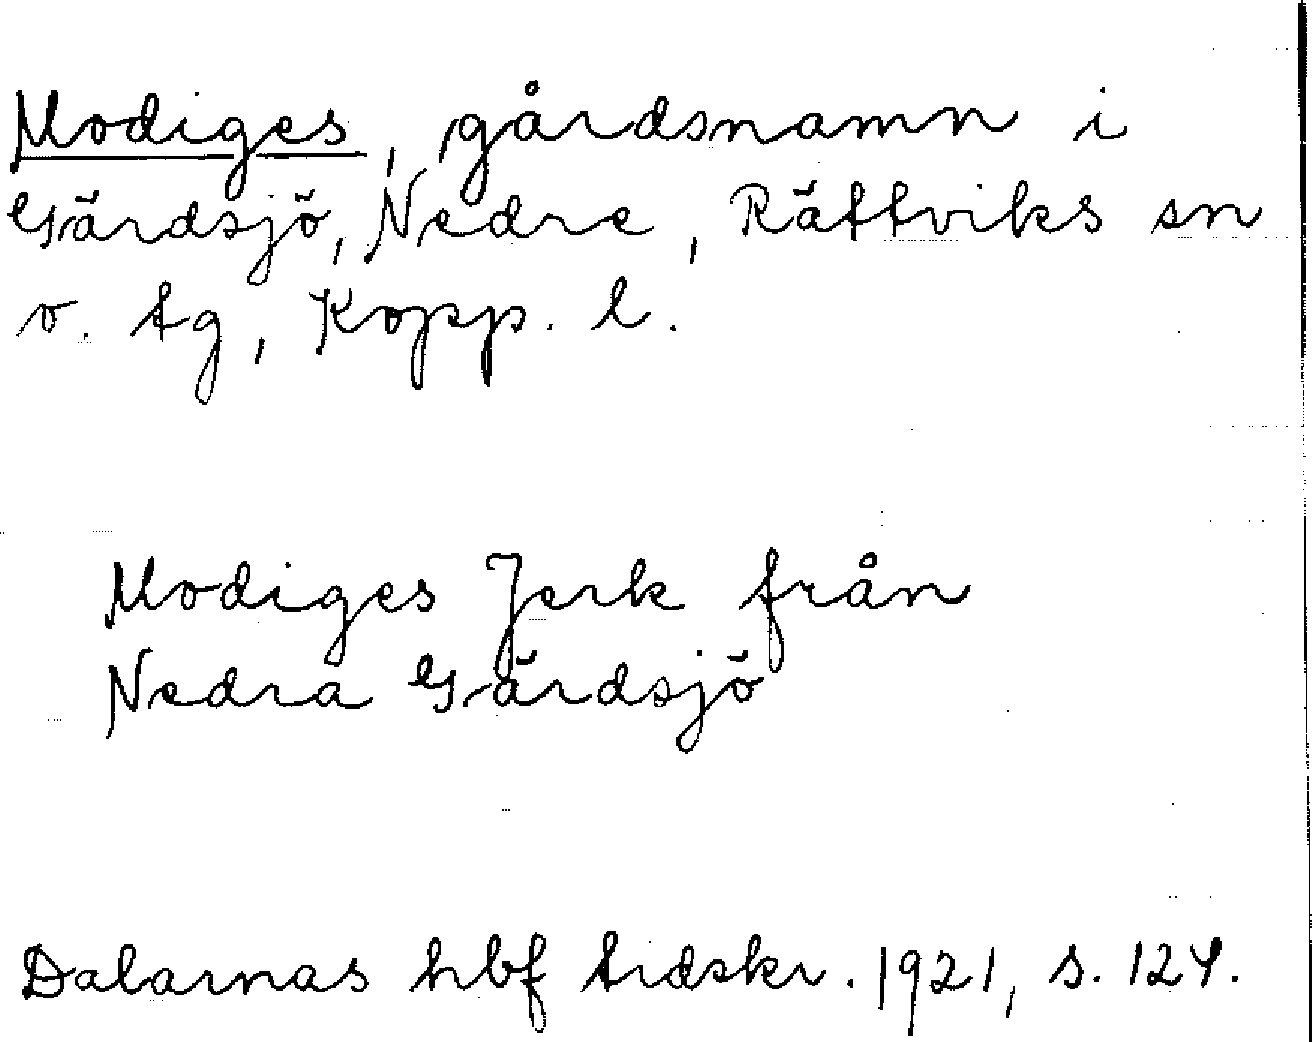 Modiges, gårdsnamn i
Gärdsjö, Nedre, Rättviks sn
o. tg, Kopp. l.
Modiges Jerk från
Nedra Gärdsjö
Dalarnas hbf tidskr. 1921, s. 124.